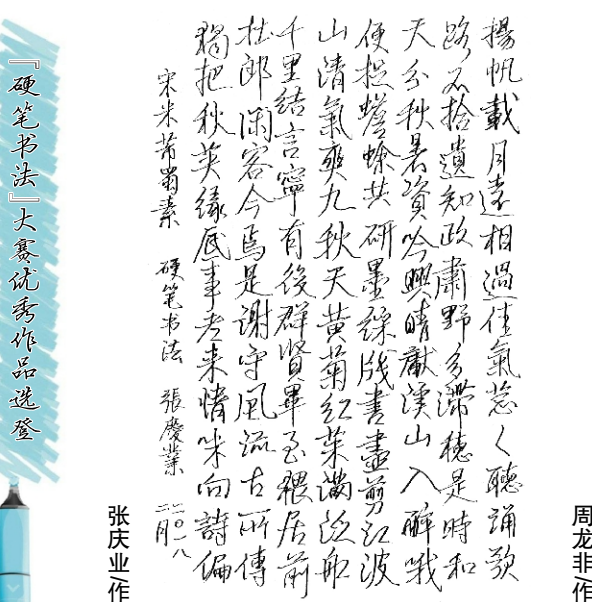 揚帆載月遠相過佳氣葱々聽誦歌
路不拾遺知政肅野多滯穗是時和
天分秋暑資吟興晴獻溪山入醉哦
便捉蟾蜍共研墨綵牋書盡剪江波
山清氣爽九秋天黄菊红茱滿泛船
千里結言寧有後群賢畢至猥居前
杜郎闲客今焉是謝守風流古所傳
獨把秋英緣底事老來情味向詩偏
宋米芾蜀素 硬笔书法 張慶業 二〇一八
二月
『硬笔书法』大赛优秀作品选登
张庆业/作
周龙非/作